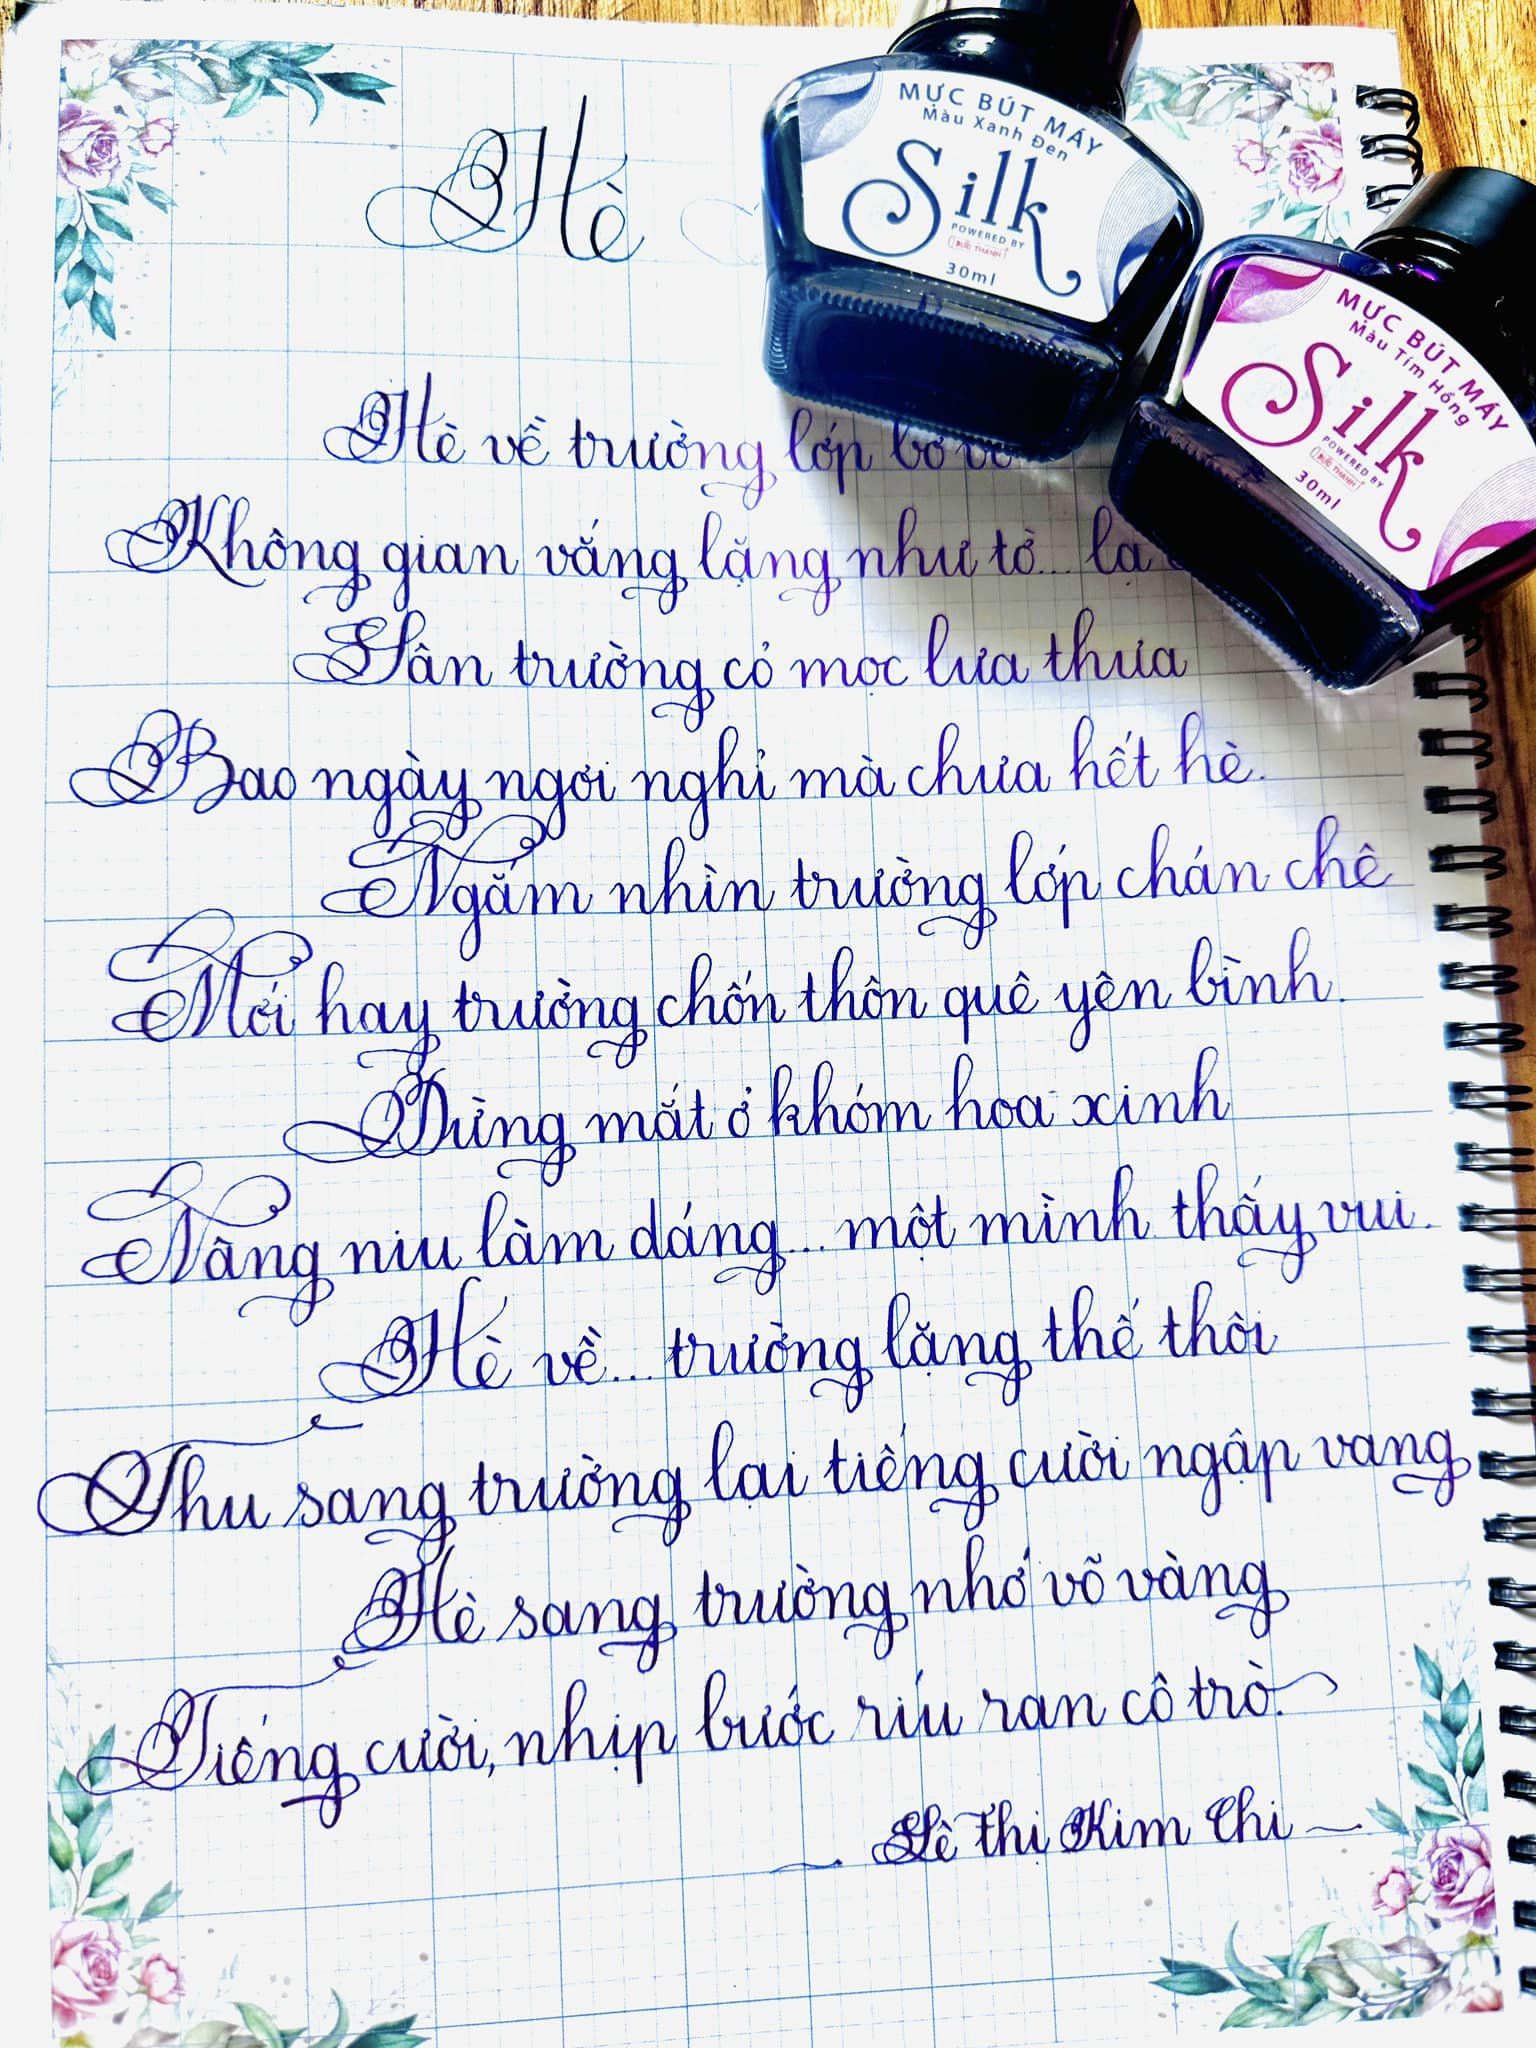 Hè
MỰC BÚT MÁY
Màu Xanh Đen
Silk
POWERED BY
ĐỨC THANH
30ml
MỰC BÚT MÁY
Màu Tím Hồng
Silk
POWERED BY
ĐỨC THANH
30ml
Hè về trường lớp bơ vơ
Không gian vắng lặng như tờ... lạ
Sân trường cỏ mọc lưa thưa
Bao ngày ngơi nghỉ mà chưa hết hè.
Ngắm nhìn trường lớp chán chê
Mới hay trường chốn thôn quê yên bình.
Dừng mắt ở khóm hoa xinh
Nâng niu làm dáng... một mình thấy vui.
Hè về... trường lặng thế thôi
Thu sang trường lại tiếng cười ngập vang
Hè sang trường nhớ võ vàng
Tiếng cười, nhịp bước ríu ran cô trò.
Lê Thị Kim Chi